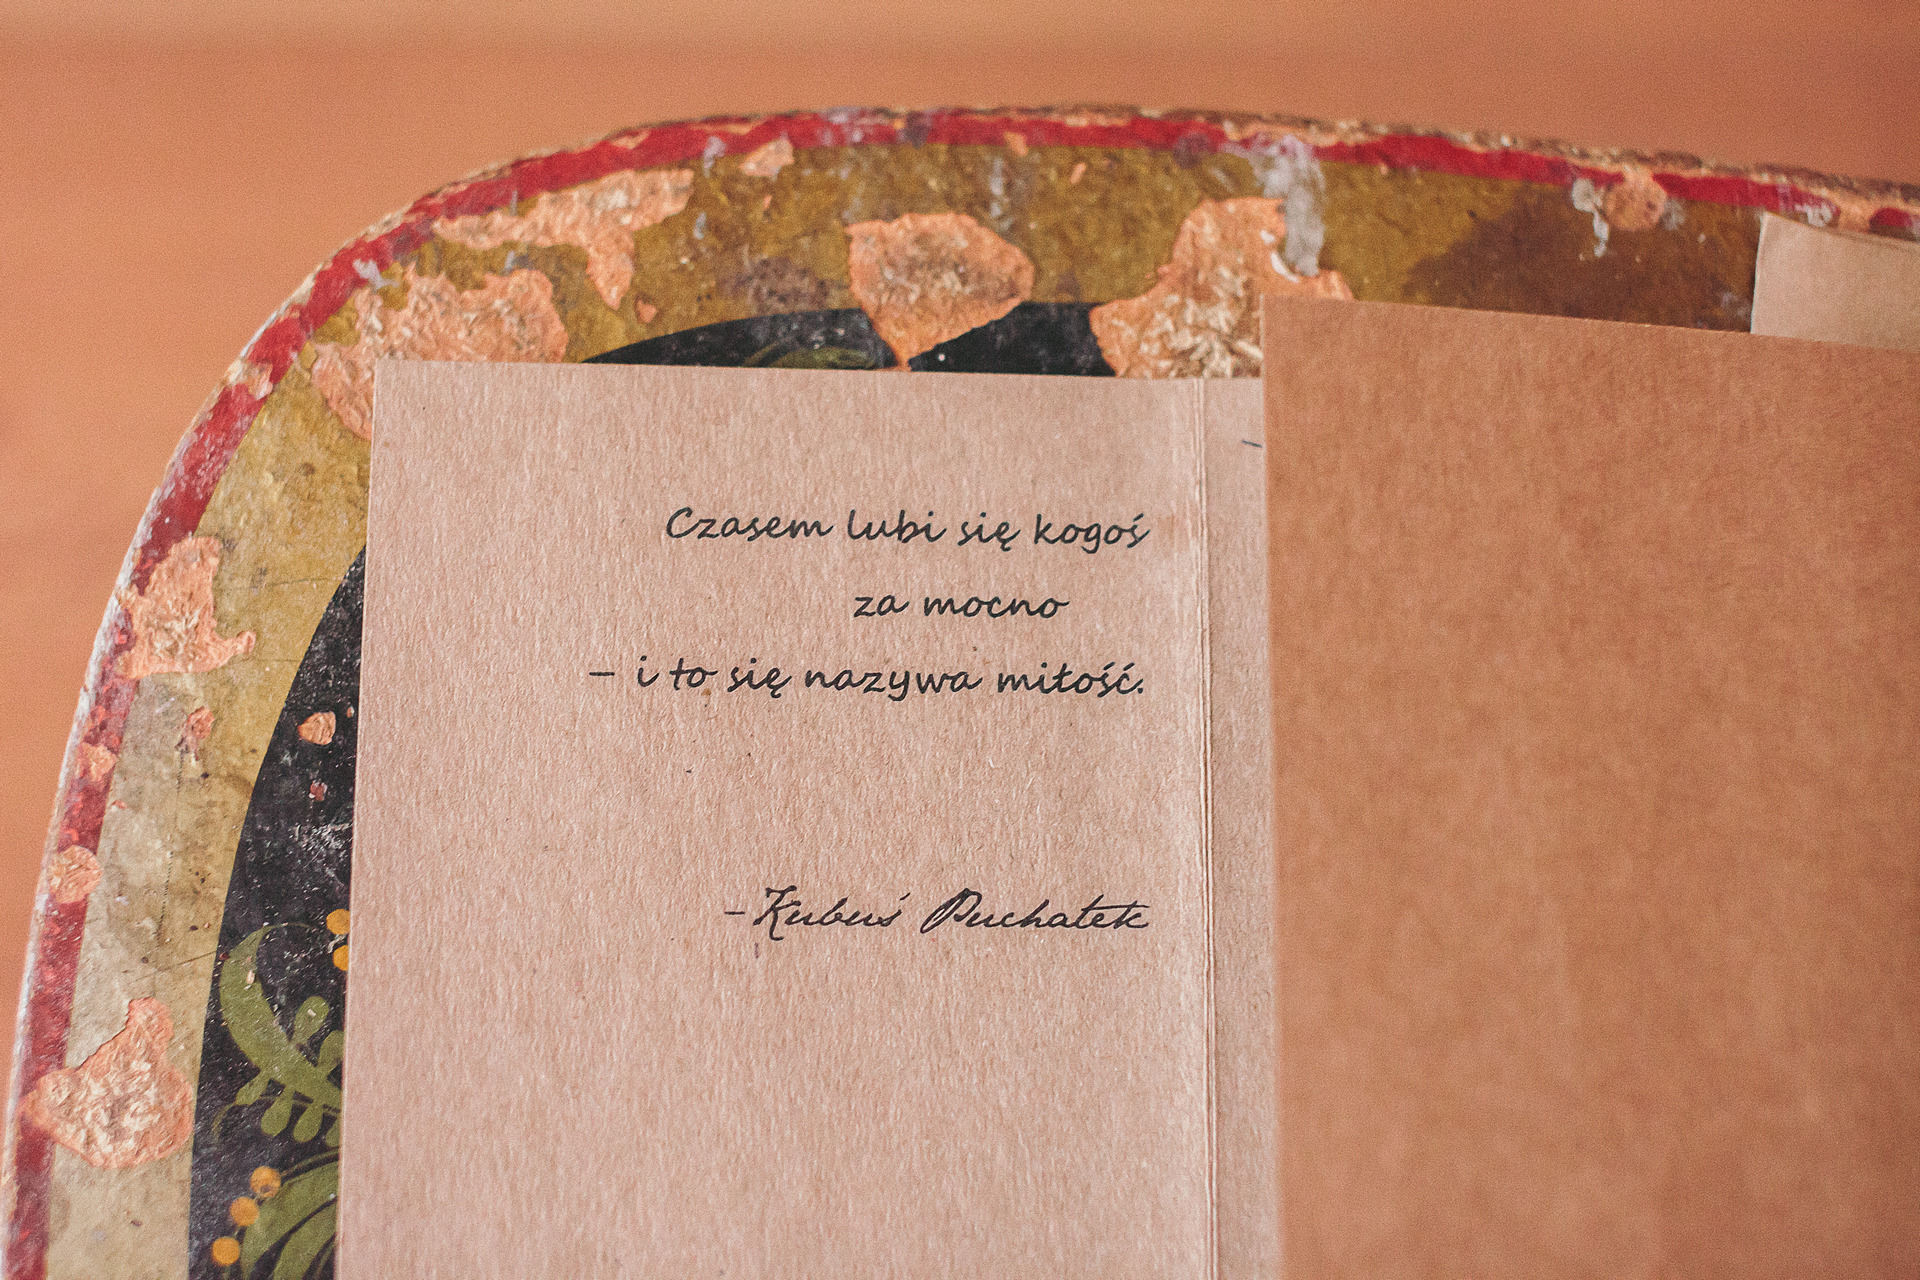 Czasem lubi się kogoś
za mocno
– i to się nazywa miłość.
-Kubuś Puchatek